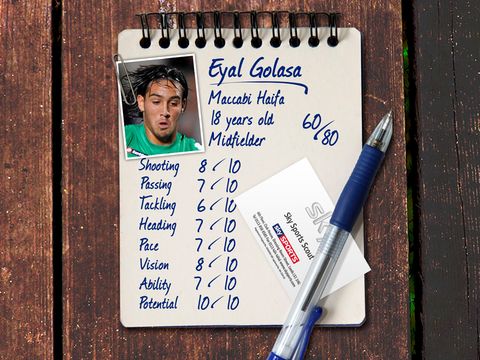 Eyal Golasa
Maccabi Haifa
18 years old
Midfielder
60/80
Shooting 8/10
Passing 7/10
Tackling 6/10
Heading 7/10
Pace 7/10
Vision 8/10
Ability 7/10
Potential 10/10
sky
Sky Sports Scout
sky SPORTS